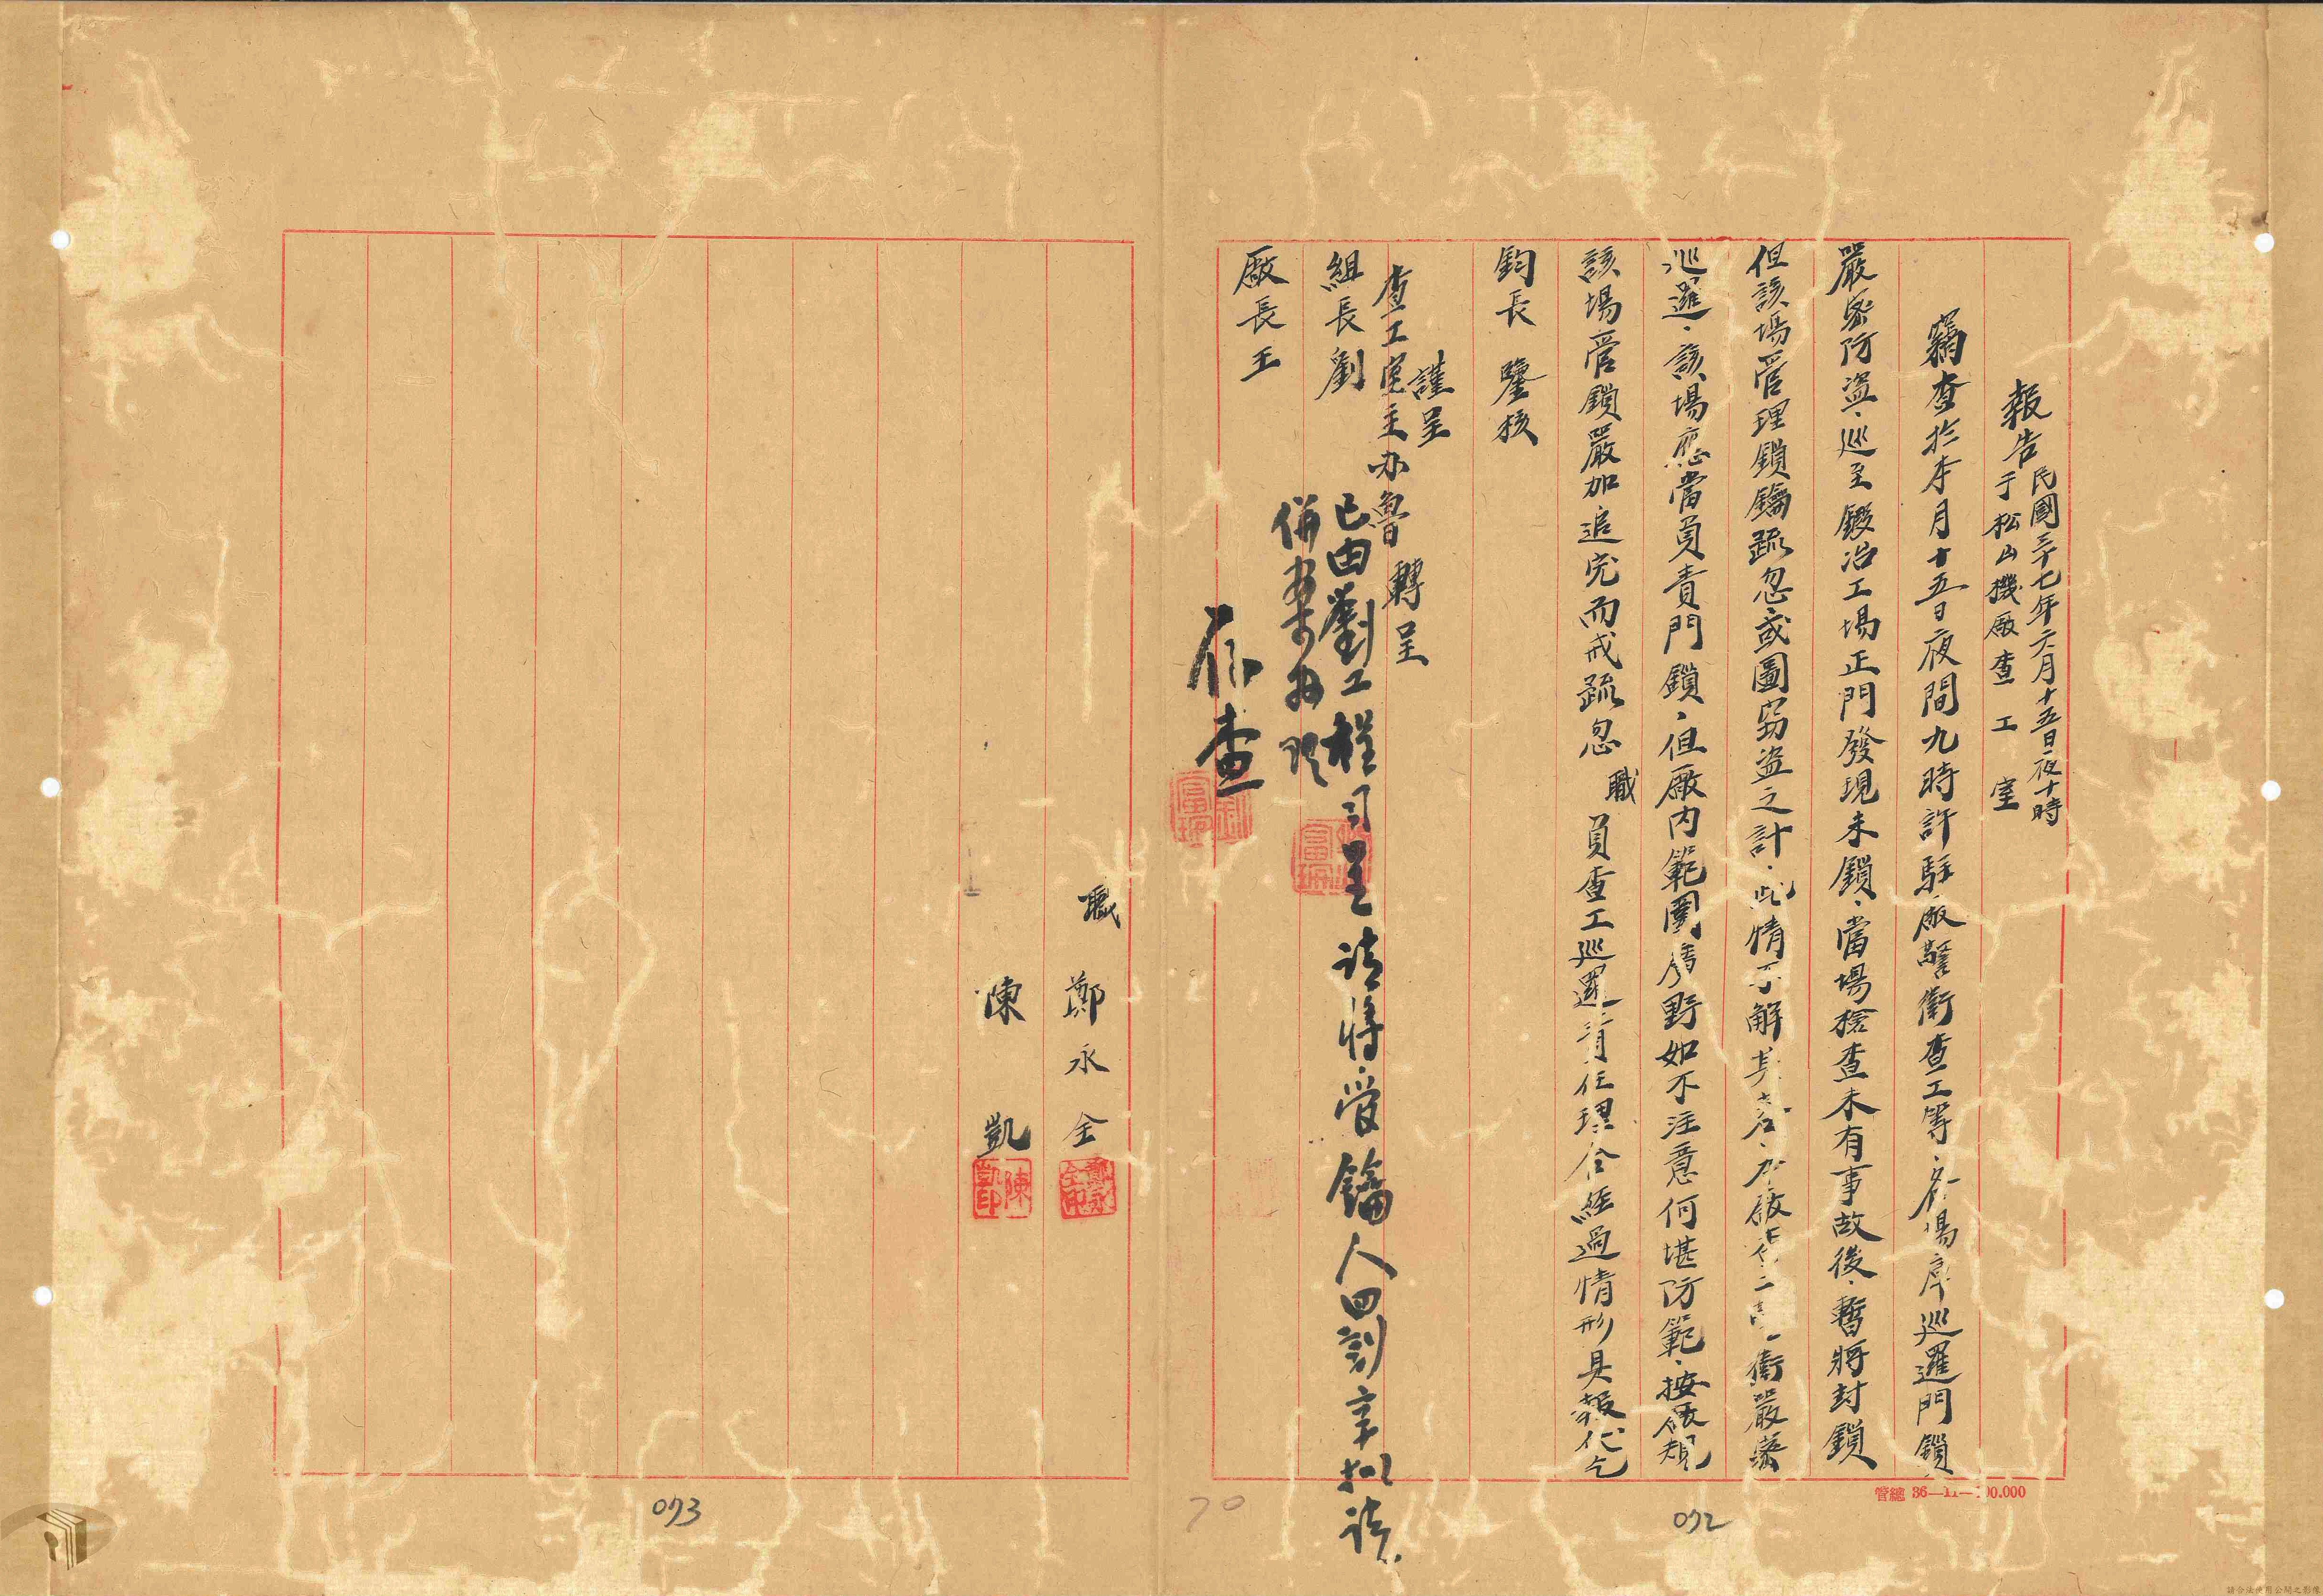 報告 民國三十七年六月十五日夜十時
于松山機廠查工室
竊查於本月十五日夜間九時許駐廠警衛查工等·各場庫巡邏門鎖
嚴密防盜·巡至鍛冶工場正門發現未鎖·當場檢查未有事故後·暫將封鎖
但該場管理鎖鑰疏忽或圖窃盜之計·此情不解其 · 廠 衛嚴密
巡邏·該場應當負責門鎖·但廠內範圍廣野如不注意何堪防範·按 規
該場管鎖嚴加追究而戒疏忽 職員查工巡邏責任理合經過情形具報伏乞
鈞長 鑒核
謹呈
查工室主办魯 轉呈
組長劉
廠長王
已由劉工程司呈請將管鑰人四剖 請
併案 
存查
職 鄭永全
陳凱
鄭永全印
陳凱印
管總 36—11—
70
072
073
請合法使用公開之影像